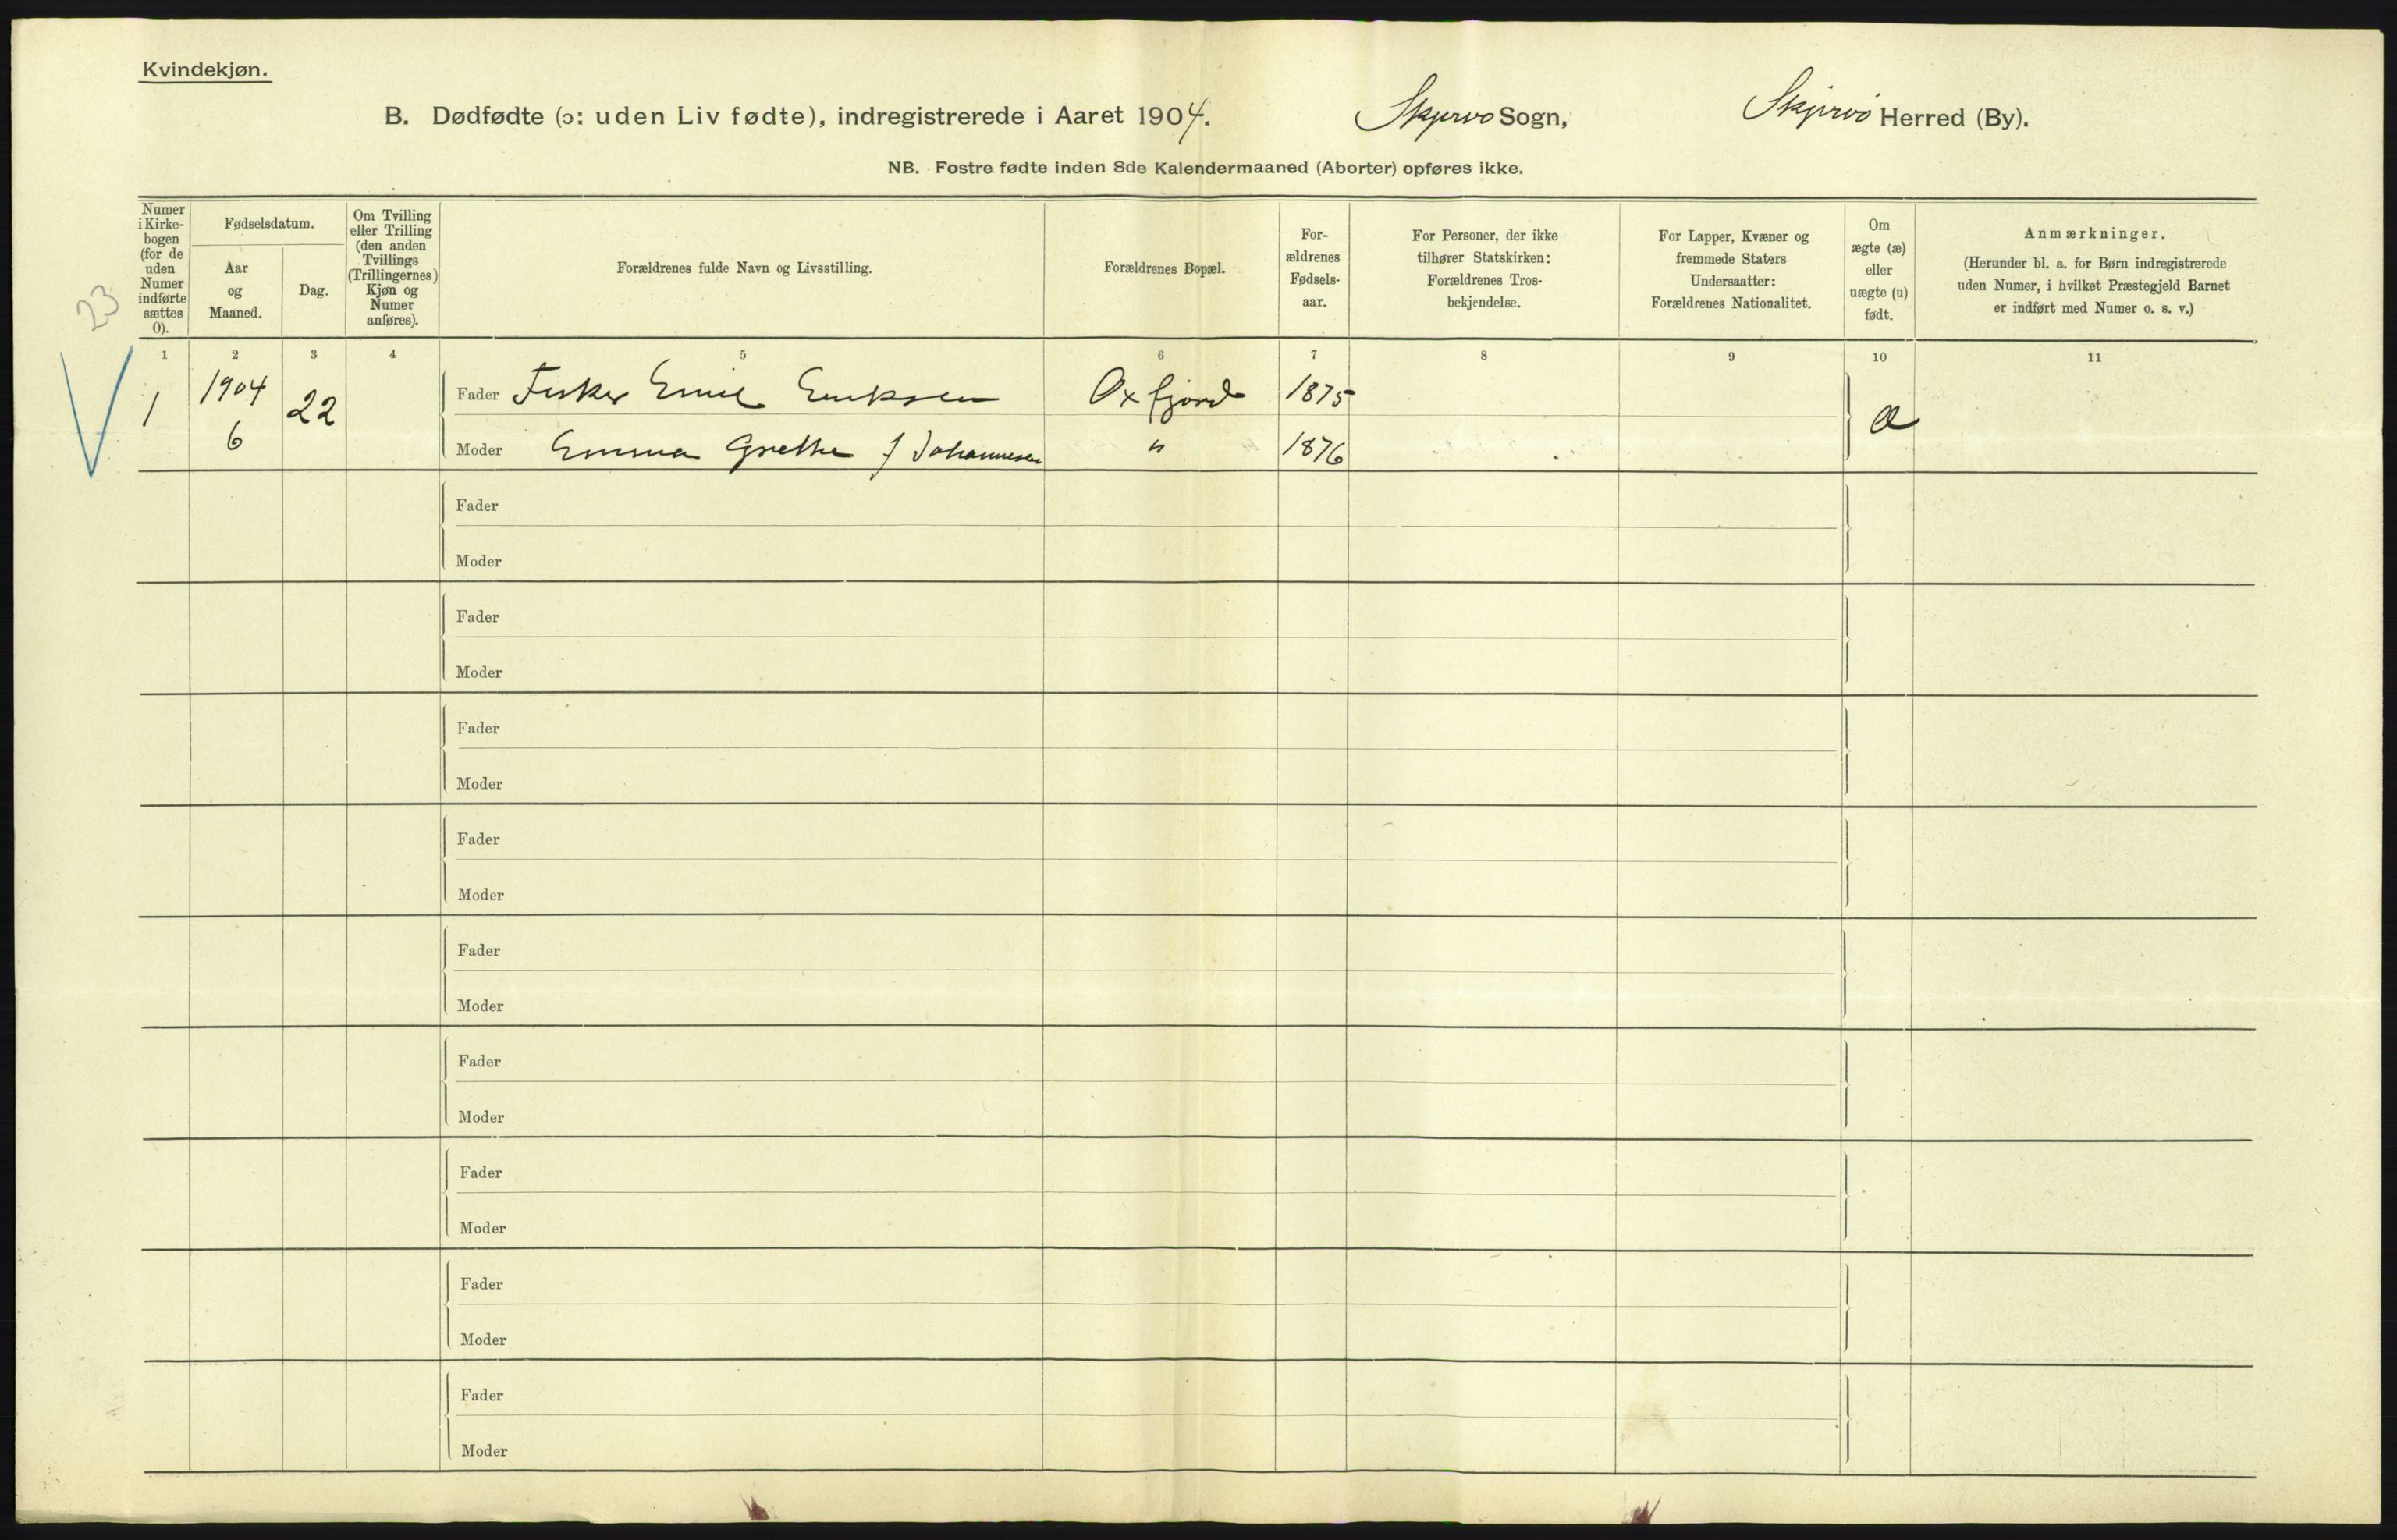 Kvindekjøn.
B. Dødfødte (ɔ: uden Liv fødte), indregistrerede i Aaret 1904. Skjervø Sogn, Skjervø Herred (By).
NB. Fostre fødte inden 8de Kalendermaaned (Aborter) opføres ikke.
Numer
i Kirke-
bogen
(for de
uden
Numer
indførte
sættes
0).
Fødselsdatum.
Aar
og
Maaned.
Dag.
Om Tvilling
eller Trilling
(den anden
Tvillings
(Trillingernes)
Kjøn og
Numer
anføres).
Forældrenes fulde Navn og Livsstilling.
Forældrenes Bopæl.
For-
ældrenes
Fødsels-
aar.
For Personer, der ikke
tilhører Statskirken:
Forældrenes Tros-
bekjendelse.
For Lapper, Kvæner og
fremmede Staters
Undersaatter:
Forældrenes Nationalitet.
Om
ægte (æ)
eller
uægte (u)
født.
Anmærkninger.
(Herunder bl. a. for Børn indregistrerede
uden Numer, i hvilket Præstegjeld Barnet
er indført med Numer o. s. v.)
23
1 2 3 4 5 6 7 8 9 10 11
1 1904 6 22
Fader Fisker Emil Eriksen Oxfjord 1875
Moder Emma Grethe f Johannesen " 1876
æ
Fader
Moder
Fader
Moder
Fader
Moder
Fader
Moder
Fader
Moder
Fader
Moder
Fader
Moder
Fader
Moder
Fader
Moder